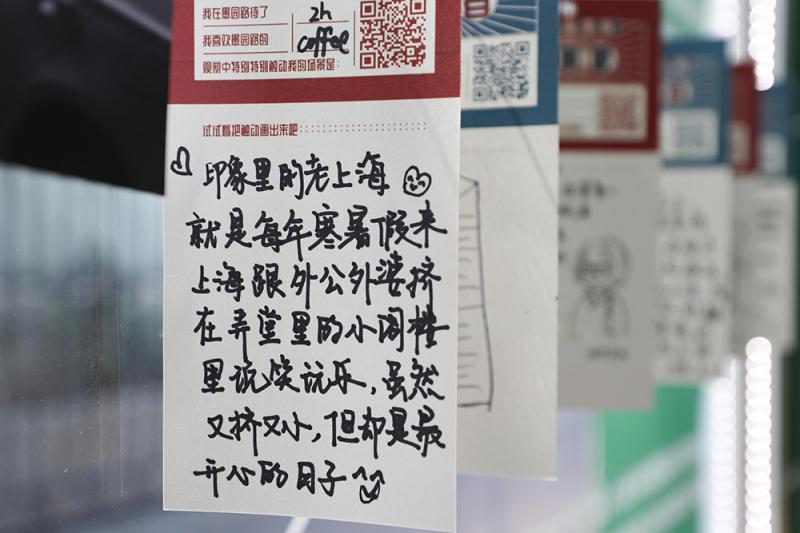 我在愚园路待了 2h
我喜欢愚园路的 coffee
观察中特别特别触动我的场景是:
试试看把触动画出来吧
印象里的老上海
就是每年寒暑假来
上海跟外公外婆挤
在弄堂里的小阁楼
里说笑玩乐,虽然
又挤又小,但却是最
开心的日子